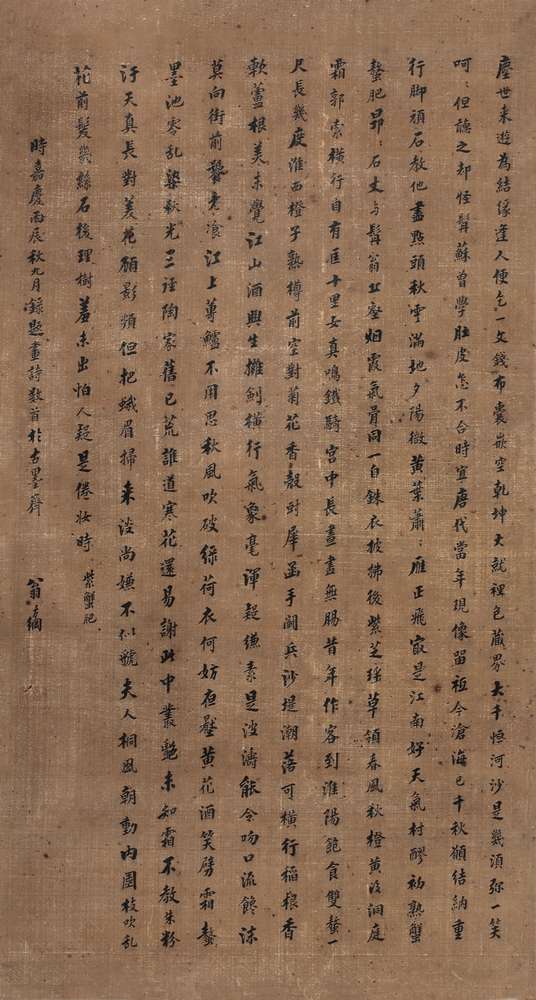 塵世来遊為結緣逢人便乞一文錢布囊嵌空乾坤大就裡包藏界大千恒河沙是幾須弥一笑
呵:但聽之却怪髯蘇曾學肚皮怎不合時宜唐代當年現像留祖今滄海已千秋願結納重
行脚頑石教他盡點頭秋雲滿地夕陽微黄葉蕭:雁正飛寂是江南好天氣村醪初熟蟹
螯肥昴:石丈与髯翁烟霞氣骨同一自銖衣披拂後紫芝瑶草領春風秋橙黄後洞庭
霜郭索横行自有匡十里女真鳴鐵騎宫中長晝畫無腸昔年作客到淮陽飽食雙螯一
尺長幾度淮西橙子熟樽前空對菊花香殻封犀函手闘兵沙堤潮落可横行稻根香
軟蘆根美未覺江山酒興生攤劍横行氣象毫渾疑縑素是波濤能令吻口流饞沫
莫向街前鬻老饕江上蓴鱸不用思秋風吹破绿荷衣何妨夜壓黄花酒笑劈霜螯
墨池零乱染秋光三径陶家舊已荒誰道寒花還易謝此中叢艷未知霜不教朱粉
汙天真長對美花顾影頻但把蛾眉掃来淡尚嫌不似虢夫人桐風朝動内園枝吹乱
花前髮幾絲石後理樹羞未出怕人疑是倦妝時 紫蟹肥
時嘉慶丙辰秋九月録題畫詩数首於古墨齋 翁方綱